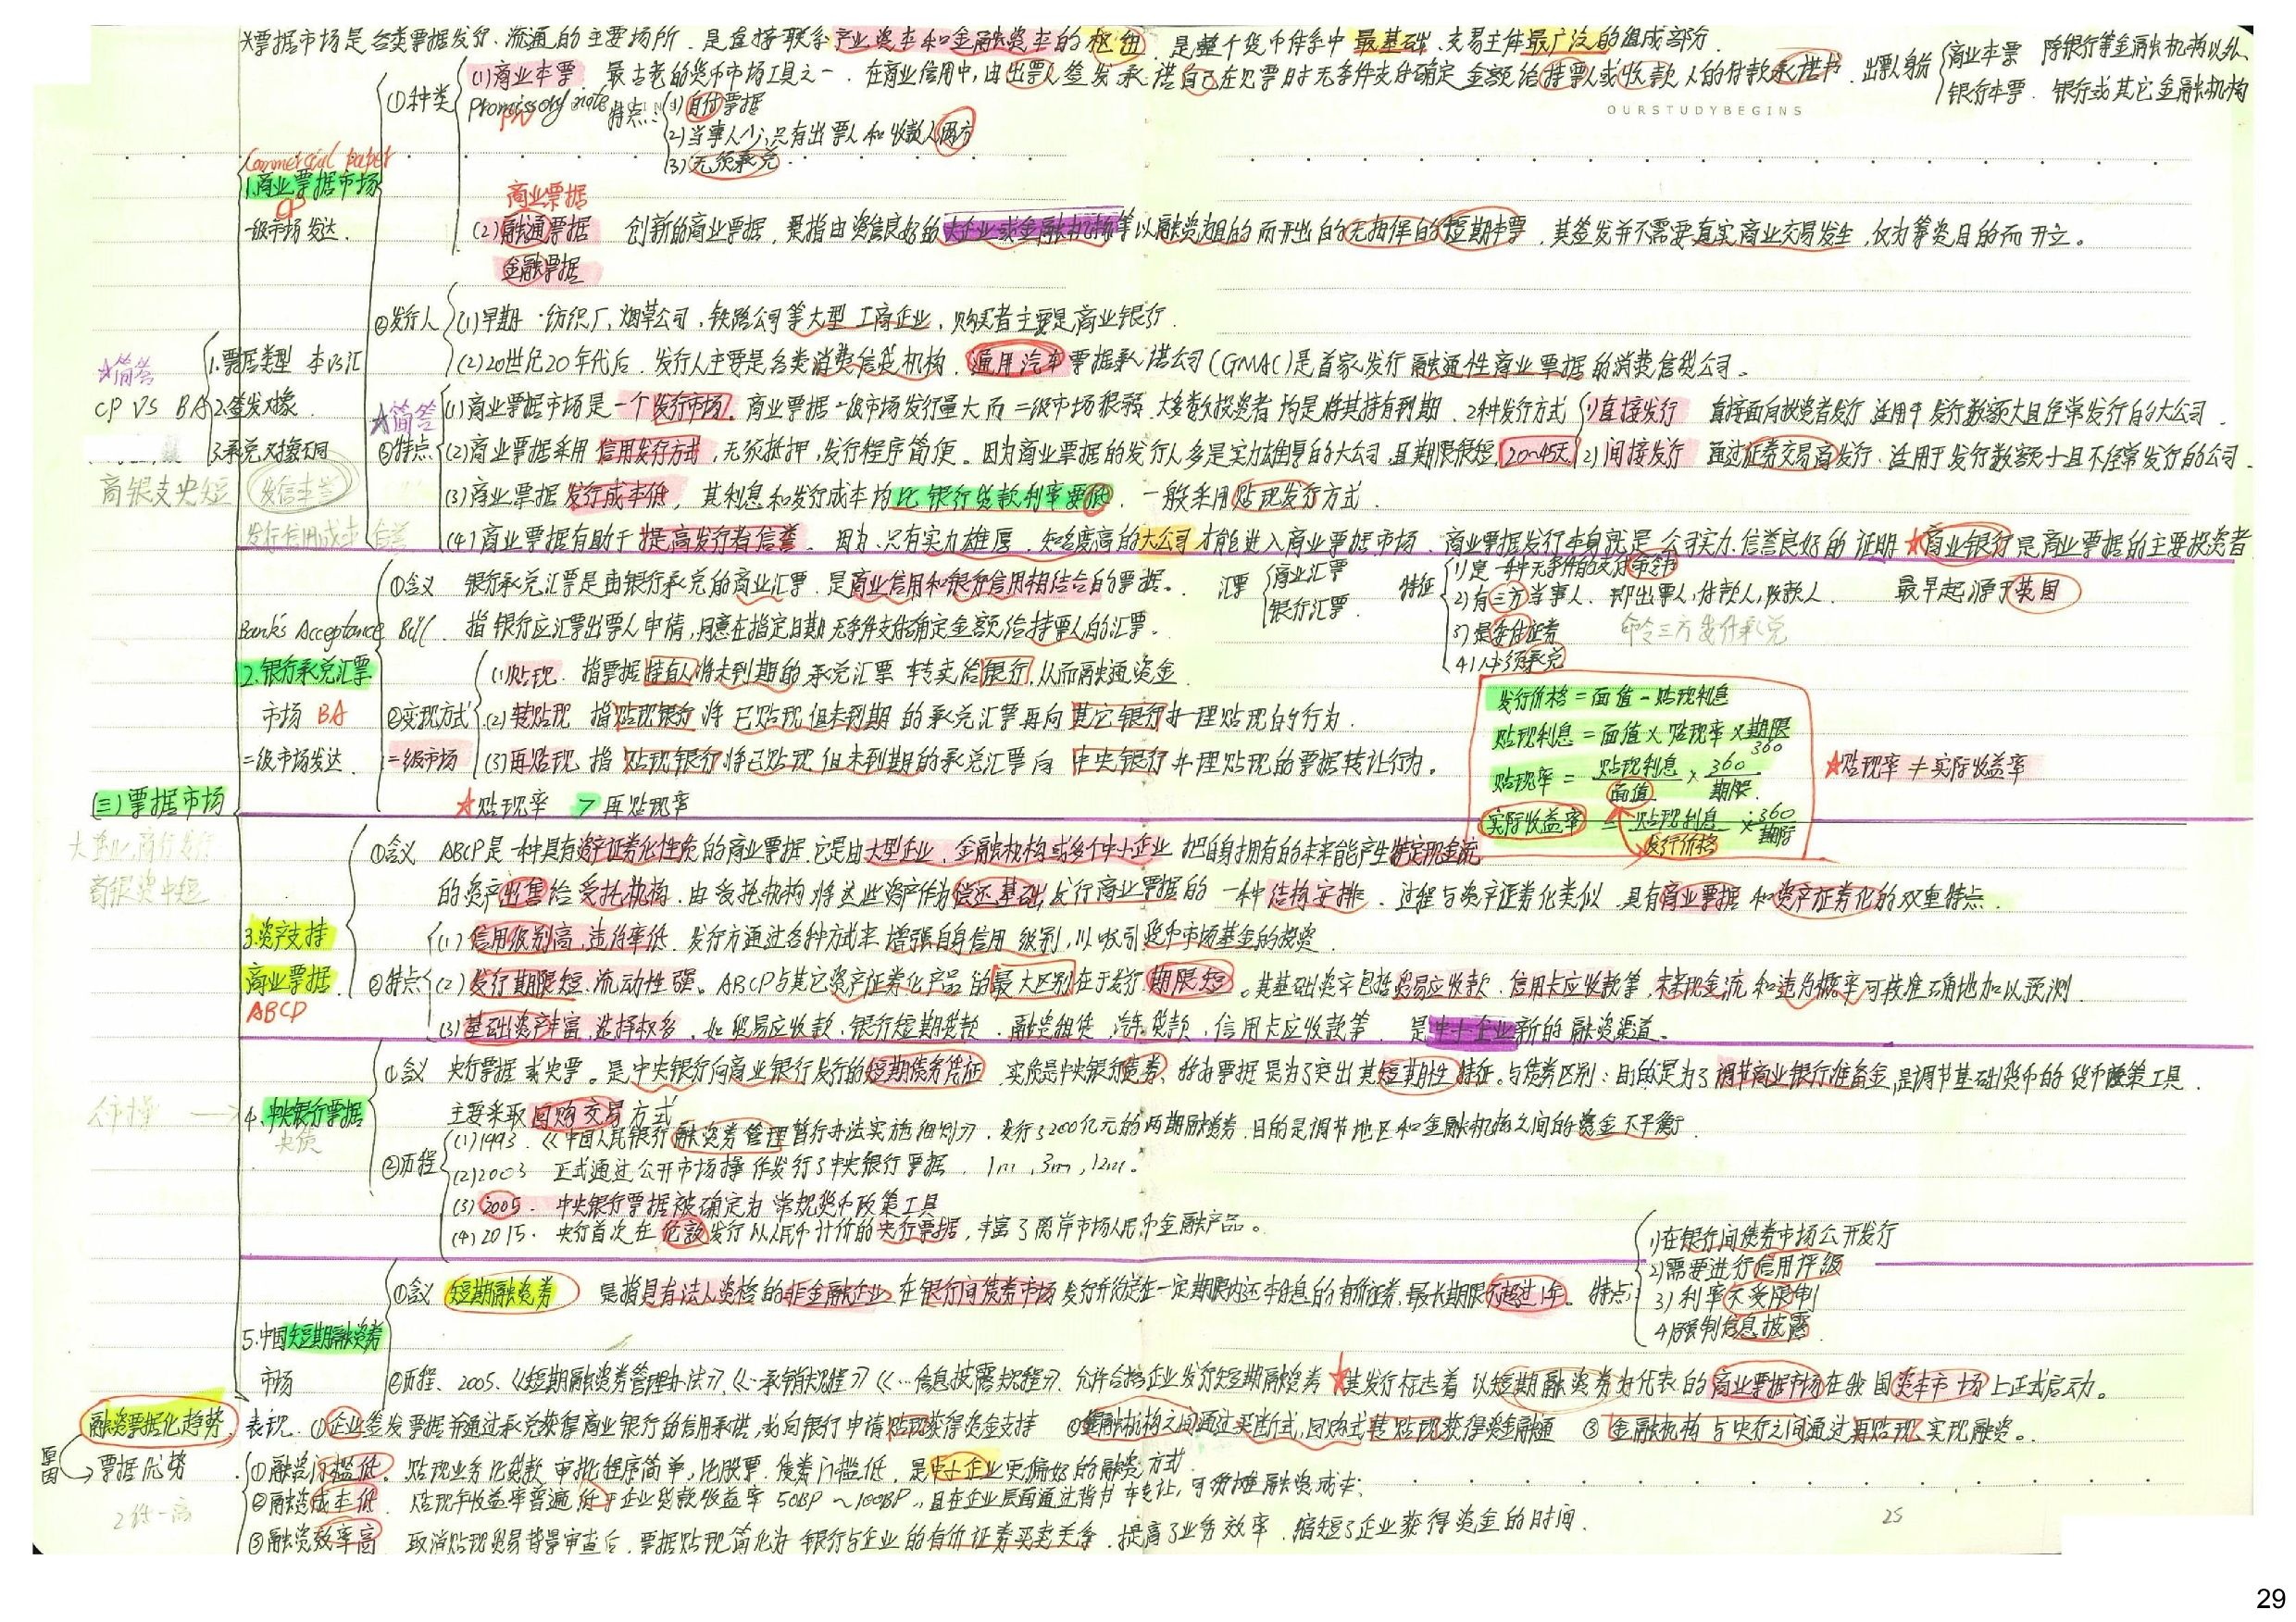 *票据市场是各类票据发行、流通的主要场所，是直接联系产业资本和金融资本的枢纽，是整个货币体系中最基础、交易主体最广泛的组成部分.
①种类
(1)商业本票 最古老的货币市场工具之一，在商业信用中，由出票人签发承诺自己在见票时无条件支付确定金额给持票人或收款人的付款承诺书. 出票人身份
商业本票 除银行等金融机构以外
银行本票. 银行或其它金融机构
Promissory note
PN
特点:
1)自付票据
2)当事人少,只有出票人和收款人两方
(3)无须承兑.
OURSTUDYBEGINS
Commercial paper
1.商业票据市场
CP
一级市场发达.
商业票据
(2)融通票据 创新的商业票据，是指由资信良好的大企业或金融机构等以融资为目的而开出的无担保的短期本票，其签发并不需要真实商业交易发生，仅为筹资目的而开立。
金融票据
②发行人
(1)早期.纺织厂、烟草公司，铁路公司等大型工商企业，购买者主要是商业银行.
(2)20世纪20年代后.发行人主要是各类消费信贷机构，通用汽车票据承诺公司(GMAC)是首家发行融通性商业票据的消费信贷公司。
☆简答
CP VS BA
1.票据类型 本VS汇
2.签发对象
3.承兑对象不同
商银支央短
发信主普
发行信用成本信誉
☆简答
③特点
(1)商业票据市场是一个发行市场. 商业票据一级市场发行量大而二级市场很弱,大多数投资者均是将其持有到期. 2种发行方式
1)直接发行 直接面向投资者发行 适用于发行数额大且经常发行的大公司.
(2)商业票据采用信用发行方式,无须抵押,发行程序简便。因为商业票据的发行人多是实力雄厚的大公司,且期限很短,20~45天
2)间接发行 通过证券交易商发行.适用于发行数额小且不经常发行的公司.
(3)商业票据发行成本低，其利息和发行成本均比银行贷款利率要低. 一般采用贴现发行方式.
(4)商业票据有助于提高发行者信誉. 因为、只有实力雄厚、知名度高的大公司才能进入商业票据市场、商业票据发行本身就是公司实力、信誉良好的证明 ★商业银行是商业票据的主要投资者
①含义 银行承兑汇票是由银行承兑的商业汇票，是商业信用和银行信用相结合的票据。
汇票
商业汇票
银行汇票.
特征
1)是一种无条件的支付命令
2)有三方当事人. 即出票人,付款人,收款人. 最早起源于英国
3)是委付证券 命令三方支付承兑
4)必须承兑
Bank's Acceptance Bill. 指银行应汇票出票人申请,同意在指定日期无条件支付确定金额给持票人的汇票。
2.银行承兑汇票
市场 BA
二级市场发达.
②实现方式
二级市场
(1)贴现. 指票据持有人将未到期的承兑汇票转卖给银行,从而融通资金
(2)转贴现 指贴现银行将已贴现但未到期的承兑汇票再向其它银行办理贴现的行为.
(3)再贴现 指贴现银行将已贴现但未到期的承兑汇票向中央银行办理贴现的票据转让行为.
★贴现率 > 再贴现率
发行价格=面值-贴现利息
贴现利息=面值×贴现率×期限/360
贴现率=贴现利息/面值×360/期限.
实际收益率=贴现利息/发行价格×360/期限
★贴现率≠实际收益率
(三)票据市场
大企业,商行发行
商银资中短
3.资产支持
商业票据.
ABCP
①含义 ABCP是一种具有资产证券化性质的商业票据,它是由大型企业、金融机构或多个中小企业把自身拥有的未来能产生特定现金流
的资产出售给受托机构,由受托机构将这些资产作为偿还基础发行商业票据的一种结构安排、过程与资产证券化类似 具有商业票据和资产证券化的双重特点.
②特点
(1)信用级别高,违约率低. 发行方通过各种方式来增强自身信用级别,以吸引货币市场基金的投资
(2)发行期限短,流动性强。ABCP与其它资产证券化产品的最大区别在于发行期限短。其基础资产包括贸易应收款、信用卡应收款等,未来现金流和违约概率可较准确地加以预测.
(3)基础资产丰富,选择权多. 如贸易应收款、银行短期贷款、融资租赁、汽车贷款、信用卡应收款等 是中小企业新的融资渠道。
4.中央银行票据
央债
①含义 央行票据或央票。是中央银行向商业银行发行的短期债务凭证 实质是中央银行债券、称为票据是为了突出其短期性特征。与债券区别:目的是为了调节商业银行准备金,是调节基础货币的货币政策工具.
主要采取回购交易方式
②历程
(1)1993.《中国人民银行融资券管理暂行办法实施细则》,发行了200亿元的两期融资券.目的是调节地区和金融机构之间的资金不平衡.
(2)2003 正式通过公开市场操作发行了中央银行票据. 1m,3m,12m.
(3)2005. 中央银行票据被确定为常规货币政策工具
(4)2015. 央行首次在伦敦发行以人民币计价的央行票据，丰富了离岸市场人民币金融产品。
5.中国短期融资券
市场
①含义 短期融资券 是指具有法人资格的非金融企业在银行间债券市场发行并约定在一定期限内还本付息的有价证券,最长期限不超过1年. 特点
1)在银行间债券市场公开发行
2)需要进行信用评级
3)利率不受限制
4)强制信息披露.
②历程、2005.《短期融资券管理办法》,《…承销规程》《…信息披露规程》.允许合格企业发行短期融资券 ★其发行标志着以短期融资券为代表的商业票据市场在我国资本市场上正式启动。
融资票据化趋势. 表现. ①企业签发票据并通过承兑获得商业银行的信用承诺,或向银行申请贴现获得资金支持 ②金融机构之间通过买断式,回购式转贴现获得资金融通 ③金融机构与央行之间通过再贴现实现融资。
原因
票据优势
2低一高
①融资门槛低. 贴现业务比贷款审批程序简单,比股票、债券门槛低，是中小企业更偏好的融资方式.
②融资成本低. 贴现年收益率普遍低于企业贷款收益率50BP~100BP,且在企业层面通过背书转让,可分摊融资成本;
③融资效率高 取消贴现贸易背景审查后,票据贴现简化为银行与企业的有价证券买卖关系,提高了业务效率,缩短了企业获得资金的时间.
25
29